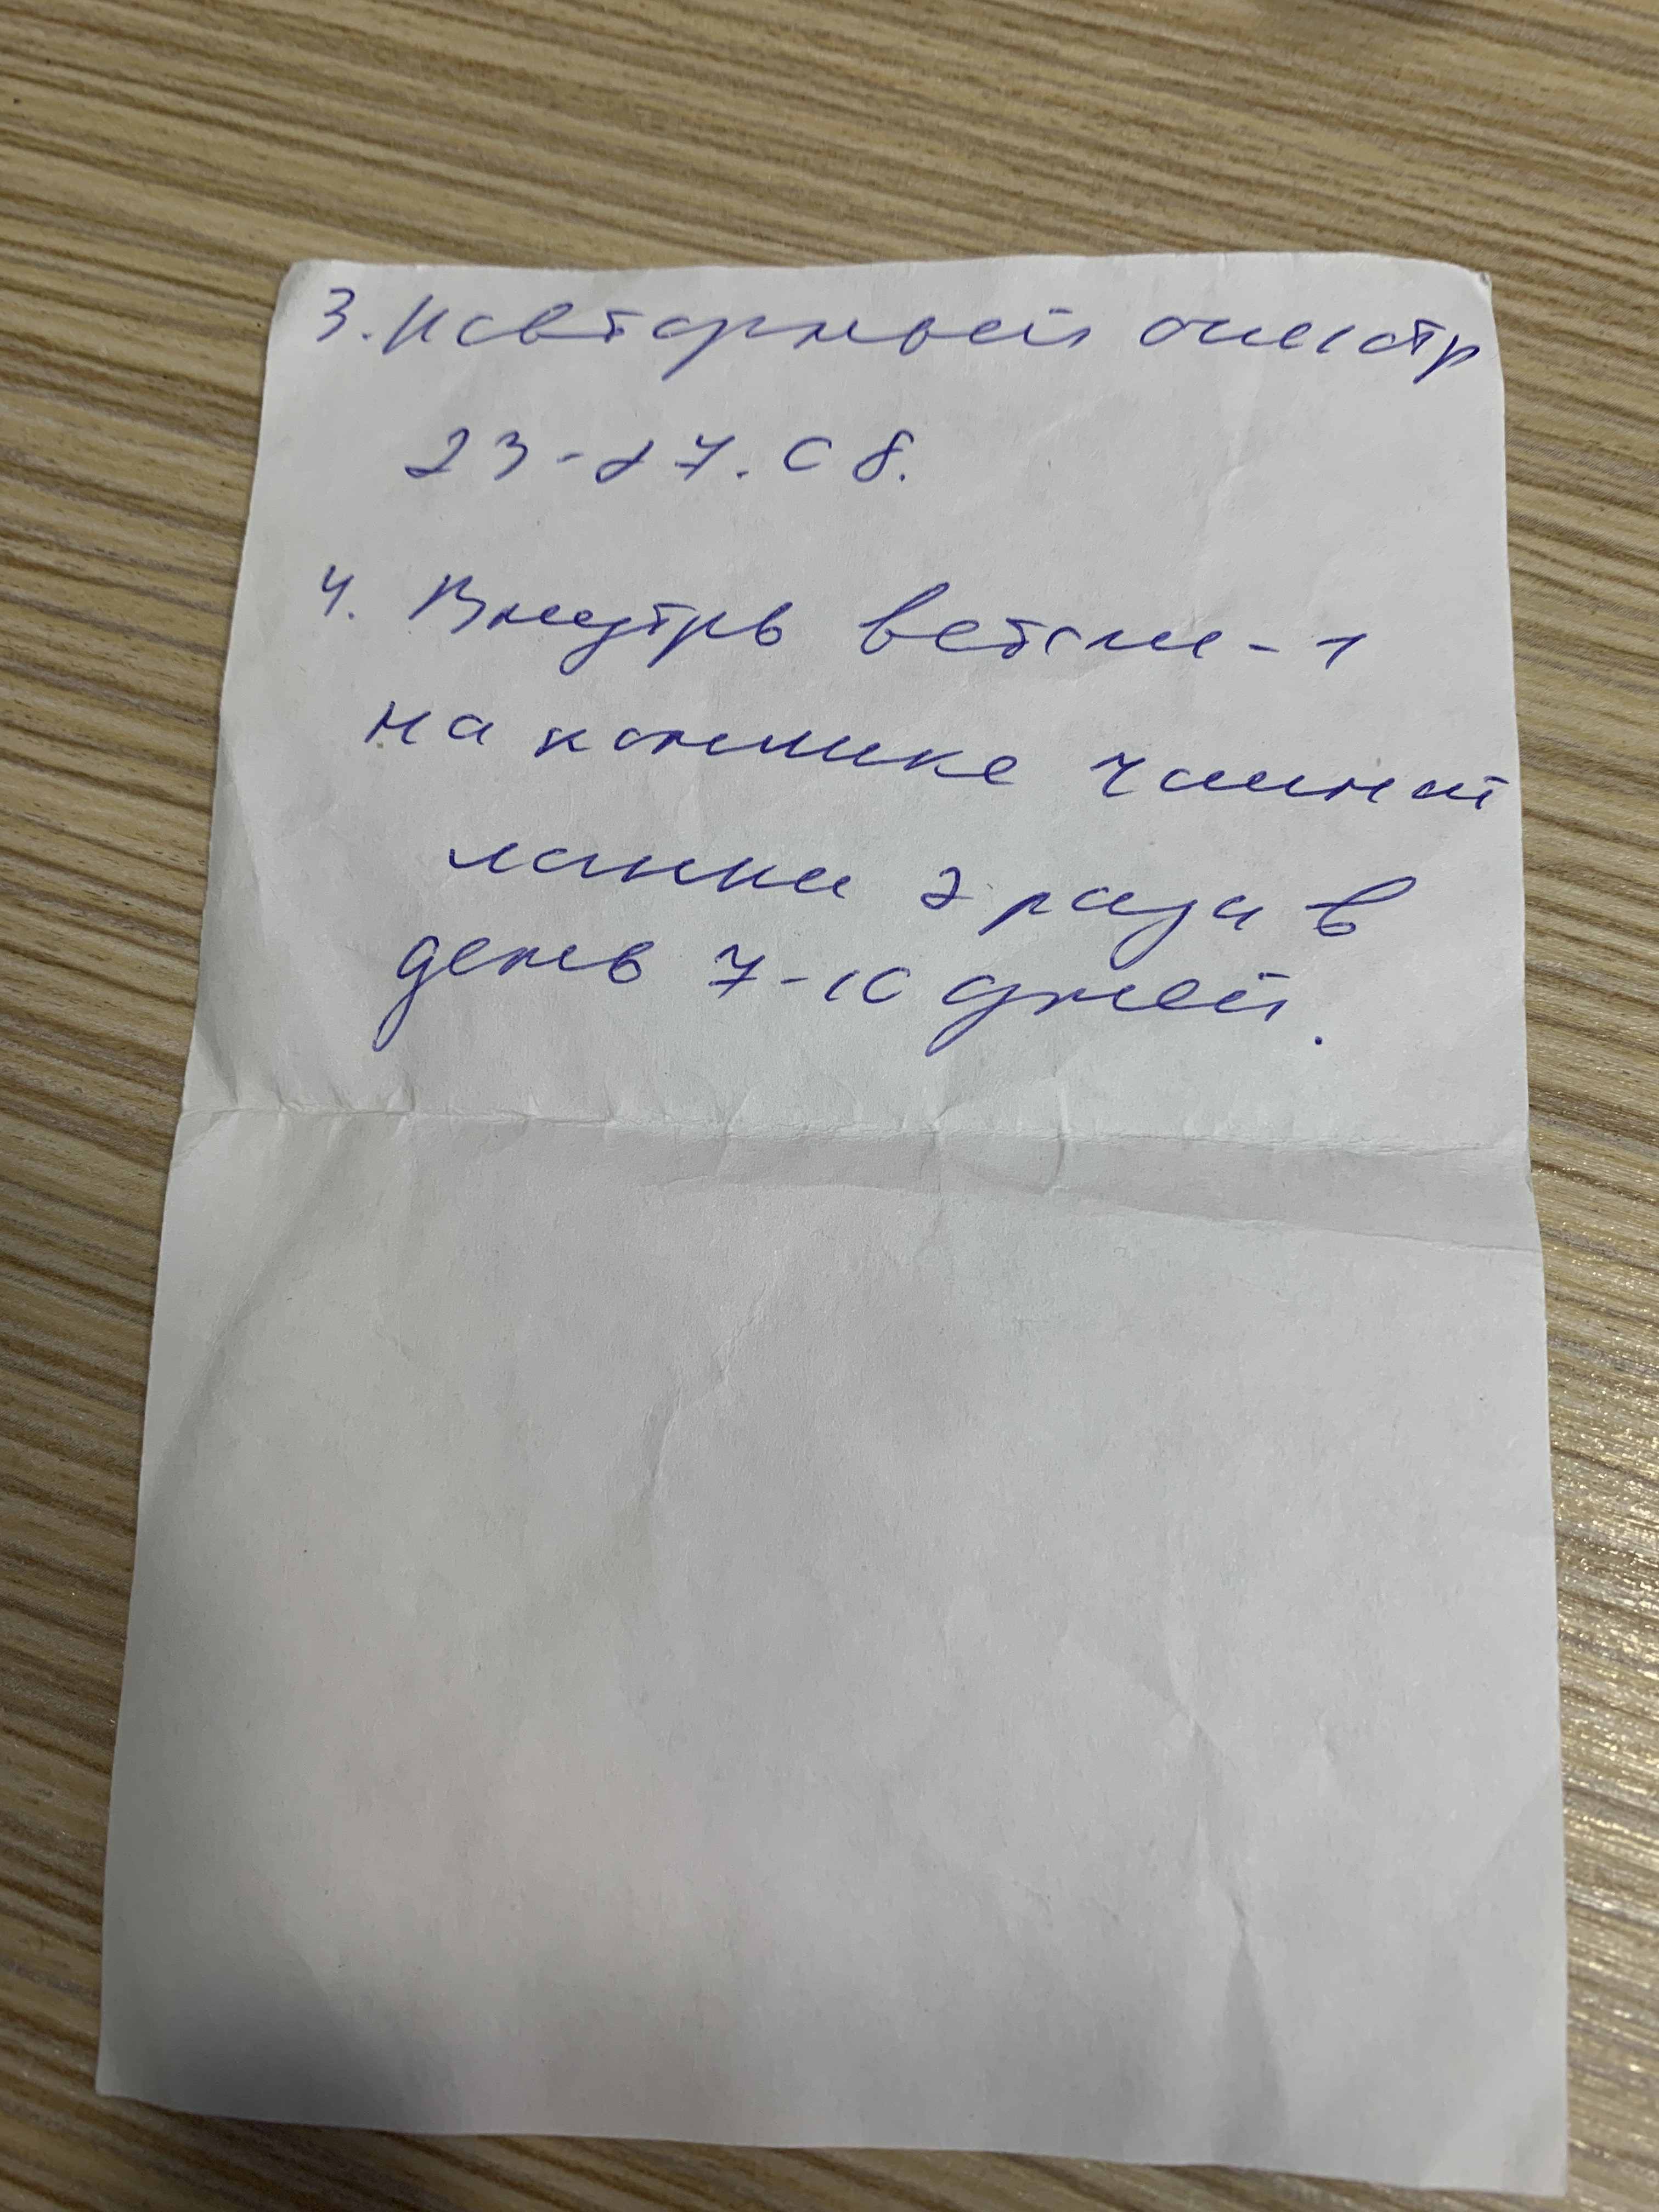 3. Повторный осмотр
23-27.08.
4. Внутрь ветом-1
на кончике чайной
ложки 2 раза в
день 7-10 дней.